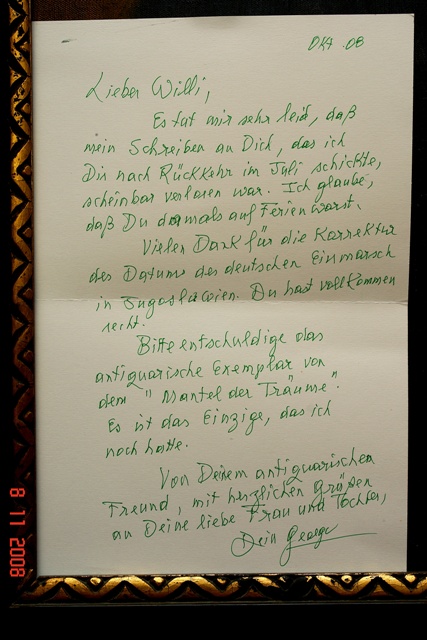 Okt. 08
Lieber Willi,
Es tut mir sehr leid, daß
mein Schreiben an Dich, das ich
Dir nach Rückkehr im Juli schickte,
scheinbar verloren war. Ich glaube,
daß Du damals auf Ferien warst.
Vielen Dank für die Korrektur
des Datums des deutschen Einmarsch
in Jugoslawien. Du hast vollkommen
recht.
Bitte entschuldige das
antiquarische Exemplar von
dem "Mantel der Träume".
Es ist das Einzige, das ich
noch hatte.
Von Deinem antiquarischen
Freund, mit herzlichen Grüßen
an Deine liebe Frau und Tochter,
Dein George
8 11 2008